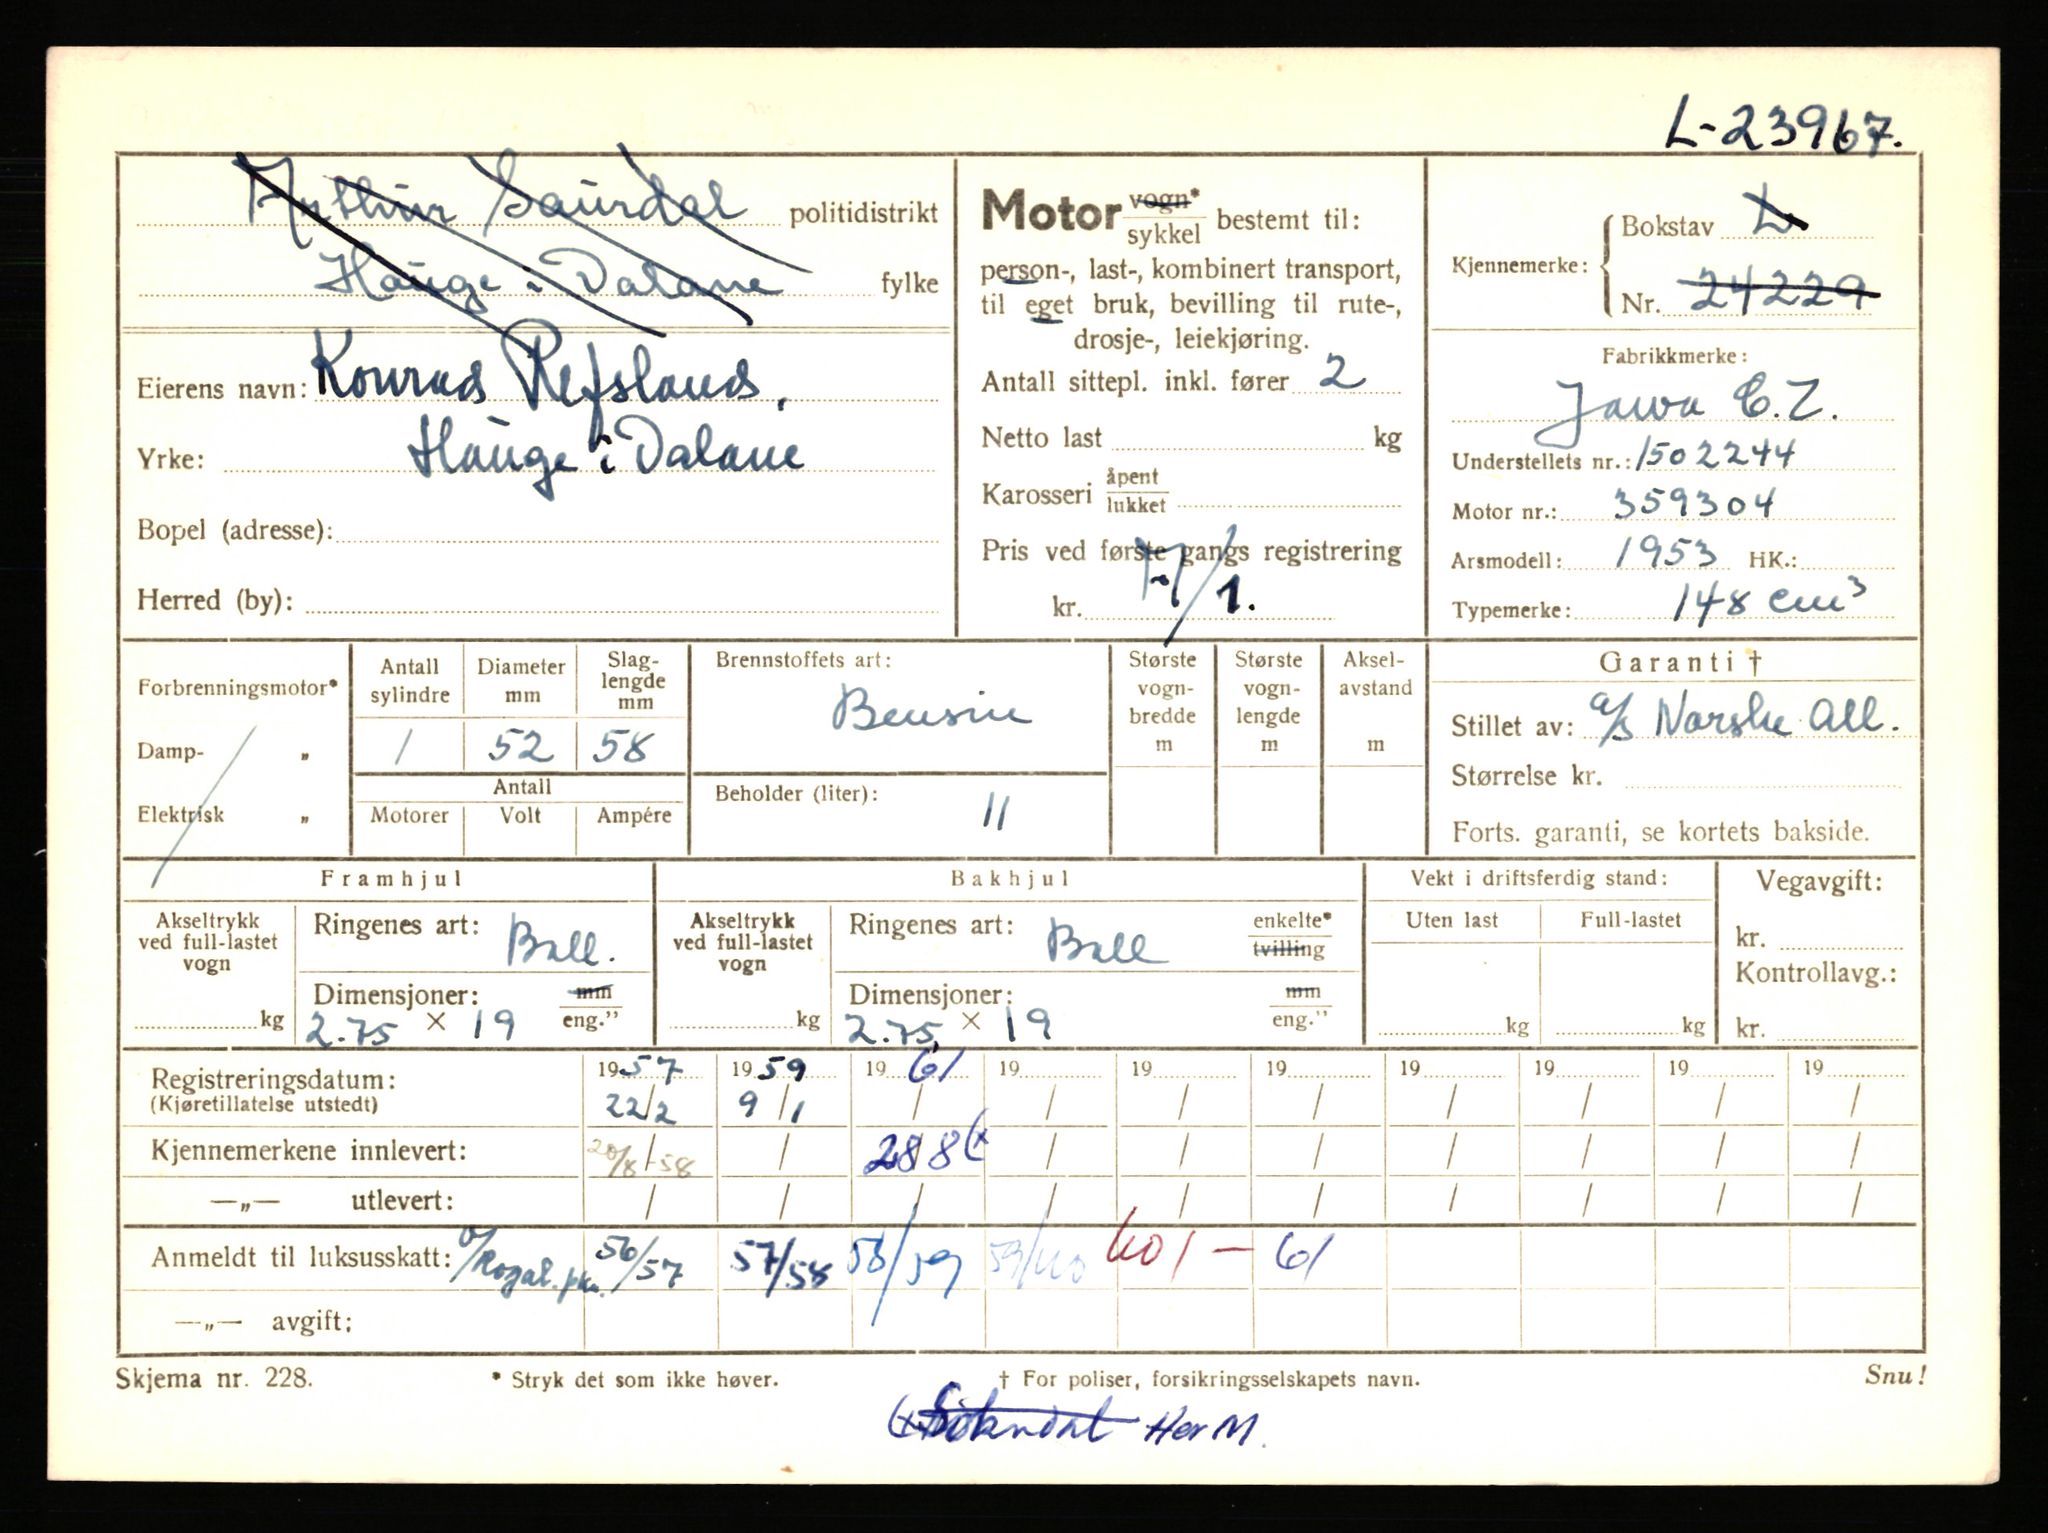 L-23967.
Arthur Saurdal politidistrikt
Hauge i Dalane fylke
Eierens navn: Konrad Refsland,
Yrke: Hauge i Dalane
Bopel (adresse):
Herred (by):
Motor vogn* / sykkel bestemt til:
person-, last-, kombinert transport,
til eget bruk, bevilling til rute-,
drosje-, leiekjøring.
Antall sittepl. inkl. fører 2
Netto last kg
Karosseri åpent / lukket
Pris ved første gangs registrering
kr. 17/1.
Kjennemerke: Bokstav L
Nr. 24229
Fabrikkmerke:
Jawa C.Z.
Understellets nr.: 1502244
Motor nr.: 359304
Arsmodell: 1953 HK.:
Typemerke: 148 cm³
Forbrenningsmotor*
Damp- „
Elektrisk „
Antall sylindre 1
Diameter mm 52
Slag-lengde mm 58
Antall
Motorer Volt Ampére
Brennstoffets art:
Bensin
Beholder (liter): 11
Største vogn-bredde m
Største vogn-lengde m
Aksel-avstand m
Garanti †
Stillet av: a/s Norske All.
Størrelse kr.
Forts. garanti, se kortets bakside.
Framhjul
Akseltrykk ved full-lastet vogn
kg
Ringenes art: Ball.
Dimensjoner: mm / eng."
2.75 × 19
Bakhjul
Akseltrykk ved full-lastet vogn
kg
Ringenes art: Ball enkelte* / tvilling
Dimensjoner: mm / eng."
2.75 × 19
Vekt i driftsferdig stand:
Uten last Full-lastet
kg kg
Vegavgift:
kr.
Kontrollavg.:
kr.
Registreringsdatum: 1957 1959 1961 19 19 19 19 19 19 19
(Kjøretillatelse utstedt) 22/2 9/1 / / / / / / / /
Kjennemerkene innlevert: 20/8-58 / 28/8 (x / / / / / / /
—„— utlevert: / / / / / / / / / /
Anmeldt til luksusskatt: 56/57 57/58 58/59 59/60 601 — 61
—„— avgift:
Skjema nr. 228.
* Stryk det som ikke høver.
† For poliser, forsikringsselskapets navn.
Snu!
(x Sokndal Her M.